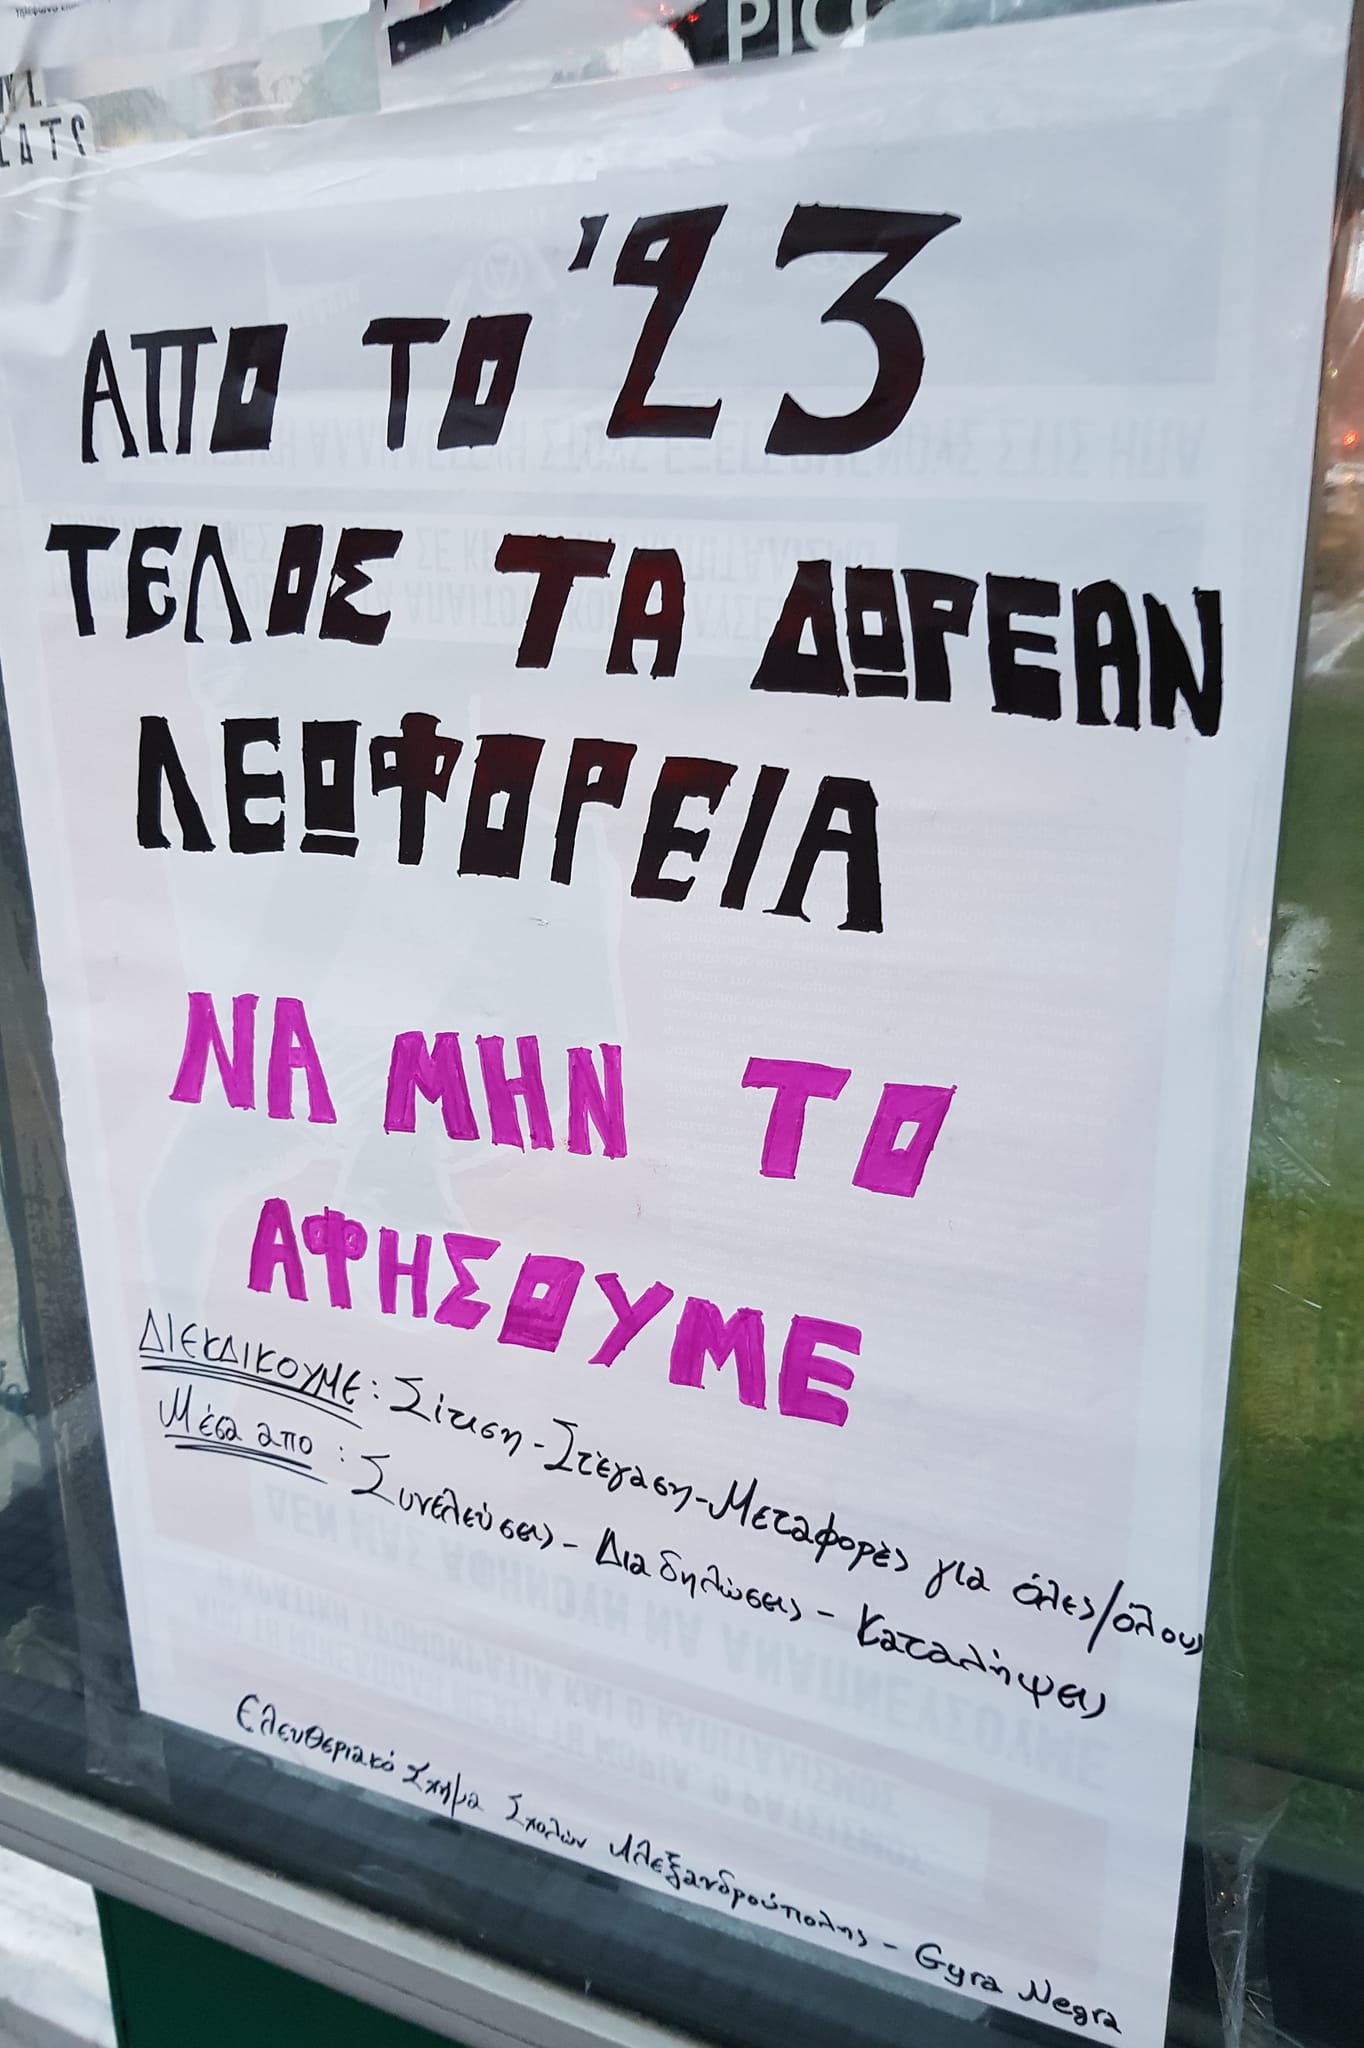 PICC
ΑΠΟ ΤΟ '23
ΤΕΛΟΣ ΤΑ ΔΩΡΕΑΝ
ΛΕΩΦΟΡΕΙΑ
ΝΑ ΜΗΝ ΤΟ
ΑΦΗΣΟΥΜΕ
ΔΙΕΚΔΙΚΟΥΜΕ: Σίτιση - Στέγαση - Μεταφορές για όλες/όλους
Μέσα απο: Συνελεύσεις - Διαδηλώσεις - Καταλήψεις
Ελευθεριακό Σχήμα Σχολών Αλεξανδρούπολης - Gyra Negra